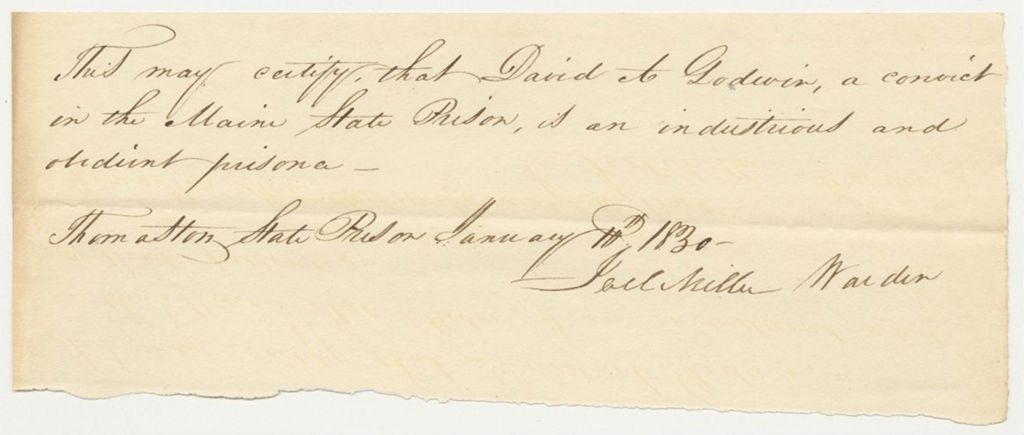 This may certify, that David A Godwin, a convict
in the Maine State Prison, is an industrious and
obedient prisoner —
Thomaston State Prison January 1830 —
Joel Miller Warden